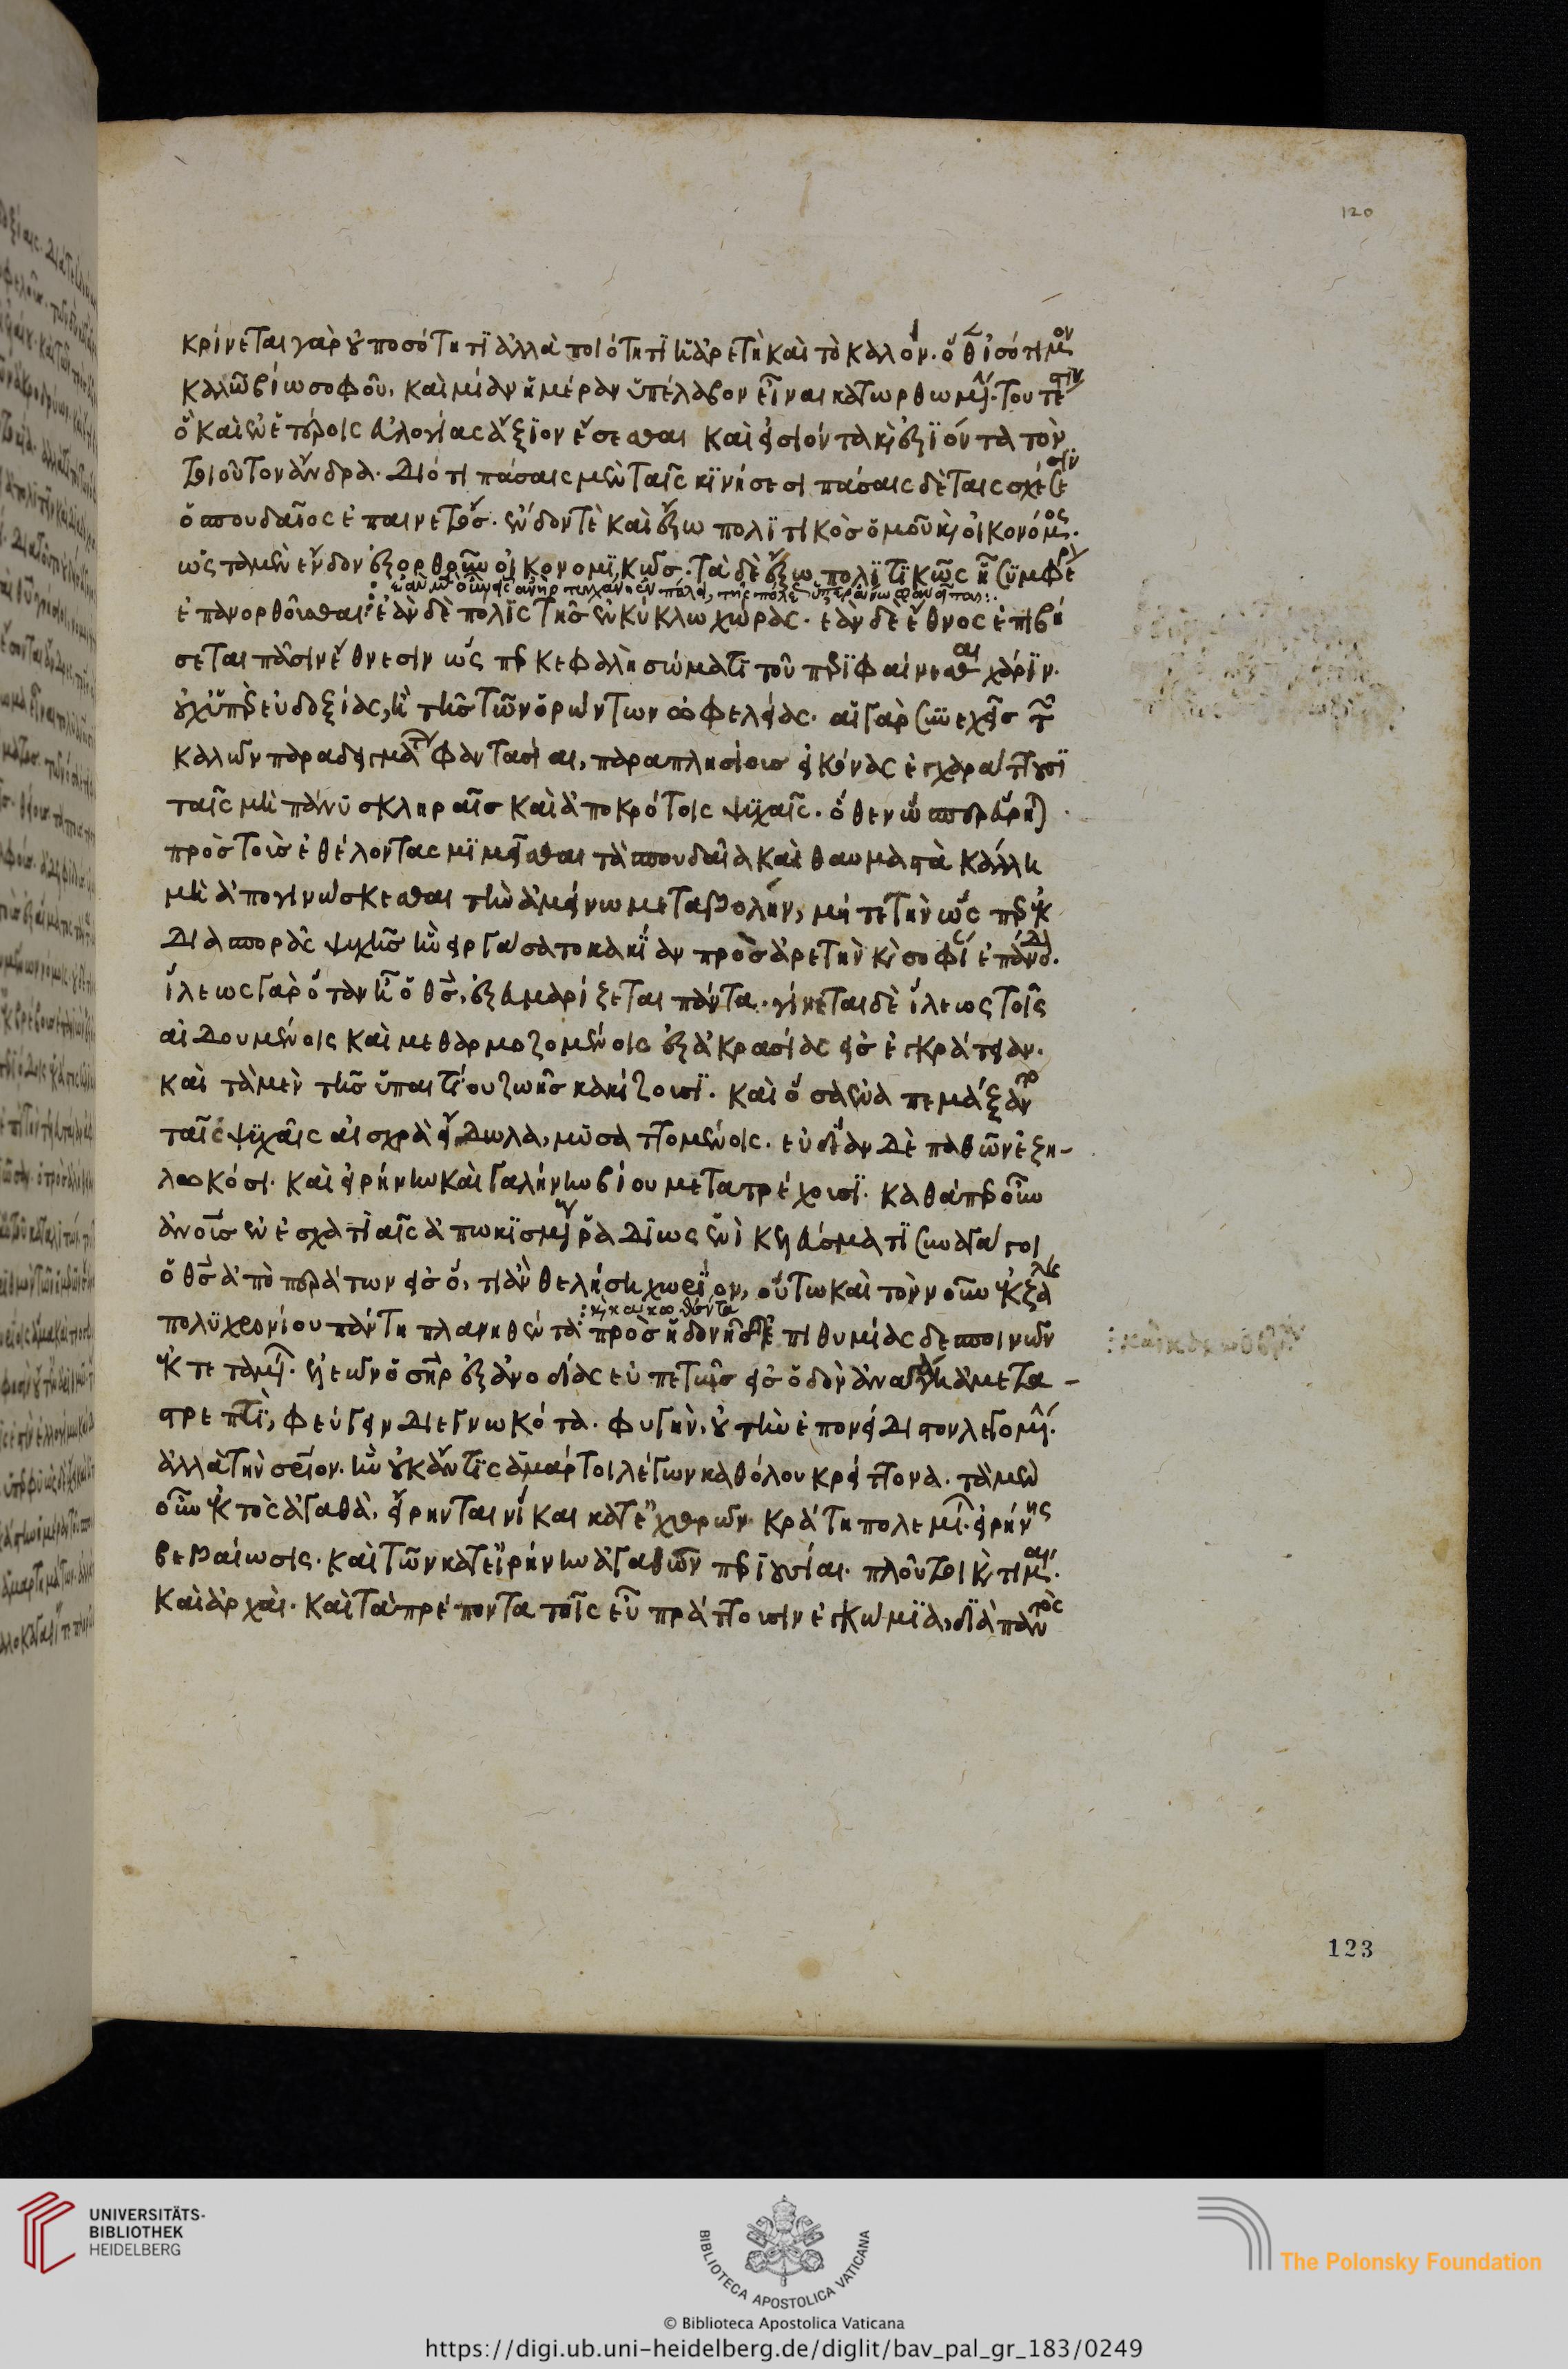 κρίνεται γὰρ οὐ ποσότητι ἀλλὰ ποιότητι ἡ ἀρετὴ καὶ τὸ καλόν. ὅθεν ἰσότιμον
καλῶ βίω σοφοῦ, καὶ μίαν ἡμέραν ὑπέλαβον εἶναι κατωρθωμένην. τουτέστιν
ὃ καὶ ἐν ἑτέροις ἀλογίας ἄξιον ἔσεσθαι καὶ εἰσιόντα καὶ ἐξιόντα τὸν
τοιοῦτον ἄνδρα. διότι πάσαις μὲν ταῖς κινήσεσι πάσαις δὲ ταῖς σχέσεσιν
ὁ σπουδαῖος ἐπαινετός. ἔνδον τὲ καὶ ἔξω πολιτικὸς ὁμοῦ καὶ οἰκονόμος.
ὡς τὰ μὲν ἔνδον ἐξορθοῦν οἰκονομικῶς. τὰ δὲ ἔξω πολιτικῶς ἧ συμφέρει
ἐὰν μὲν οὖν εἷς ἀνὴρ τυγχάνη ἐν πόλει, τῆς πόλεως ὑπεράνω φανεῖται:
ἐπανορθοῦσθαι: ἐὰν δὲ πολὶς τῆς ἐν κύκλω χώρας. ἐὰν δὲ ἔθνος ἐπιβή
σεται πᾶσιν ἔθνεσιν ὡς περ κεφαλὴ σώματι τοῦ περιφαίνεσθαι χάριν.
οὐχ ὑπὲρ εὐδοξίας, ἢ τῆς τῶν ὁρώντων ὠφελείας. αἱ γὰρ συνεχεῖς τῶν
καλῶν παραδειγμάτων φαντασίαι, παραπλησίους εἰκόνας ἐγχαράττουσι
ταῖς μὴ πάνυ σκληραῖς καὶ ἀποκρότοις ψυχαῖς. ὅθεν
πρὸς τοὺς ἐθέλοντας μιμεῖσθαι τὰ σπουδαῖα καὶ θαυμαστὰ κάλλη
μὴ ἀπογινώσκεσθαι τὴν ἀμείνω μεταβολήν, μήτε τὴν ὡς περ ἐκ
διασπορᾶς ψυχῆς ἣν εἰργάσατο κακίαν πρὸς ἀρετὴν καὶ σοφίαν ἐπάνοδον.
ἵλεως γὰρ ὅταν ᾖ ὁ θεός, ἐξευμαρίζεται πάντα. γίνεται δὲ ἵλεως τοῖς
αἰδουμένοις καὶ μεθαρμοζομένοις ἐξ ἀκρασίας εἰς ἐγκράτειαν.
καὶ τὰ μὲν τῆς ὑπαιτίου ζωῆς κακίζουσι. καὶ ὅσα ἐναπεμάξαντο
ταῖς ψυχαῖς αἰσχρὰ εἴδωλα, μυσαττομένοις. εὐδίαν δὲ παθῶν ἐζη-
λωκόσι. καὶ εἰρήνην καὶ γαλήνην βίου μετατρέχουσι. καθάπερ οὖν
ἀνοὺς ἐν ἐσχατιαῖς ἀπωκισμένους ῥαδίως ἑνὶ κελεύσματι συναγάγοι
ὁ θεὸς ἀπὸ περάτων εἰς ὅ, τι ἂν θελήση χωρίον, οὕτω καὶ τὸν νοῦν ἐκ ξάλης
:καὶ κακωθέντα
πολυχρονίου πάντη πλανηθέντα πρὸς ἡδονῆς καὶ ἐπιθυμίας δεσποινῶν
ἐκτεταμένην. ἐλεῶν ὁ σωτὴρ ἐξ ἀνοδίας εὐπετῶς εἰς ὁδὸν ἀναγάγη ἀμετα-
τρεπτὶ, φεύγειν διεγνωκότα. φυγὴν, οὐ τὴν ἐπονείδιστον λεγομένην.
ἀλλὰ τὴν σωτήριον. ἣν οὐκ ἄν τις ἁμάρτοι λέγων καθόλου κρείττονα. τὰ μὲν
οὖν ἐκτὸς ἀγαθὰ, εἴρηνται νίκαι κατ' ἐχθρῶν. κράτη πολεμίων. εἰρήνης
βεβαίωσις. καὶ τῶν κατ' εἰρήνην ἀγαθῶν περιουσίαι. πλοῦτοι καὶ τιμαὶ.
καὶ ἀρχαὶ. καὶ τὰ πρέποντα τοῖς εὖ πράττουσιν ἐγκώμια, διὰ παντὸς
120
123
UNIVERSITÄTS-
BIBLIOTHEK
HEIDELBERG
BIBLIOTECA APOSTOLICA VATICANA
The Polonsky Foundation
© Biblioteca Apostolica Vaticana
https://digi.ub.uni-heidelberg.de/diglit/bav_pal_gr_183/0249